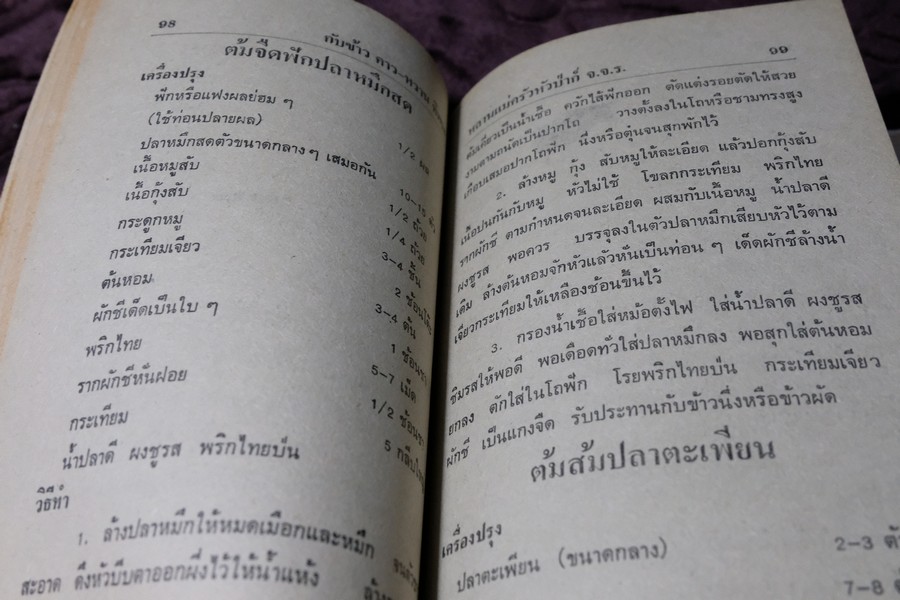 ๑๘
กับข้าว คาว-หวาน
ต้มจืดฟักปลาหมึกสด
เครื่องปรุง
ฟักหรือแฟงผลย่อม ๆ
(ใช้ท่อนปลายผล) 1/2 ผล
ปลาหมึกสดตัวขนาดกลาง ๆ เสมอกัน 10-15 ตัว
เนื้อหมูสับ 1/2 ถ้วย
เนื้อกุ้งสับ 1/4 ถ้วย
กระดูกหมู 3-4 ชิ้น
กระเทียมเจียว 2 ช้อนโต๊ะ
ต้นหอม 3-4 ต้น
ผักชีเด็ดเป็นใบ ๆ 1 ช้อนชา
พริกไทย 5-7 เม็ด
รากผักชีหั่นฝอย 1/2 ช้อนชา
กระเทียม 5 กลีบ
น้ำปลาดี ผงชูรส พริกไทยป่น
วิธีทำ
1. ล้างปลาหมึกให้หมดเมือกและหมึก
สะอาด ดึงหัวบีบตาออกผึ่งไว้ให้น้ำแห้ง ล้าง
๑๙
หลานแม่ครัวหัวป่าก์ จ.จ.ร.
ต้มเคี่ยวเป็นน้ำเชื้อ ควักไส้ฟักออก ตัดแต่งรอยตัดให้สวย
งามตามถนัดเป็นปากโถ วางตั้งลงในโถหรือชามทรงสูง
เกือบเสมอปากโถฟัก นึ่งหรือตุ๋นจนสุกพักไว้
2. ล้างหมู กุ้ง สับหมูให้ละเอียด แล้วปอกกุ้งสับ
เนื้อปนกันกับหมู หัวไม่ใช้ โขลกกระเทียม พริกไทย
รากผักชี ตามกำหนดจนละเอียด ผสมกับเนื้อหมู น้ำปลาดี
ผงชูรส พอควร บรรจุลงในตัวปลาหมึกเสียบหัวไว้ตาม
เดิม ล้างต้นหอมจักหัวแล้วหั่นเป็นท่อน ๆ เด็ดผักชีล้างน้ำ
เจียวกระเทียมให้เหลืองช้อนขึ้นไว้
3. กรองน้ำเชื้อใส่หม้อตั้งไฟ ใส่น้ำปลาดี ผงชูรส
ชิมรสให้พอดี พอเดือดทั่วใส่ปลาหมึกลง พอสุกใส่ต้นหอม
ยกลง ตักใส่ในโถฟัก โรยพริกไทยป่น กระเทียมเจียว
ผักชี เป็นแกงจืด รับประทานกับข้าวนึ่งหรือข้าวผัด
ต้มส้มปลาตะเพียน
เครื่องปรุง
ปลาตะเพียน (ขนาดกลาง) 2-3 ตัว
7-8